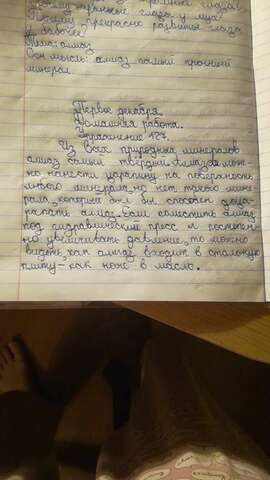 глаза
глаза у мух
прекрасно развиты глаза
у бабочек
Тема: алмаз
Осн мысль: алмаз самый прочный
минерал
Первое декабря.
Домашняя работа.
Упражнение 127.
Из всех природных минералов
алмаз самый твёрдый. Алмазом мож-
но нанести царапину на поверхность
любого минерала, но нет такого мине-
рала, который бы был способен доца-
рапать алмаз. Если поместить алмаз
под гидравлический пресс и постепен-
но увеличивать давление, то можно
видеть, как алмаз входит в стальную
плиту - как нож в масло.